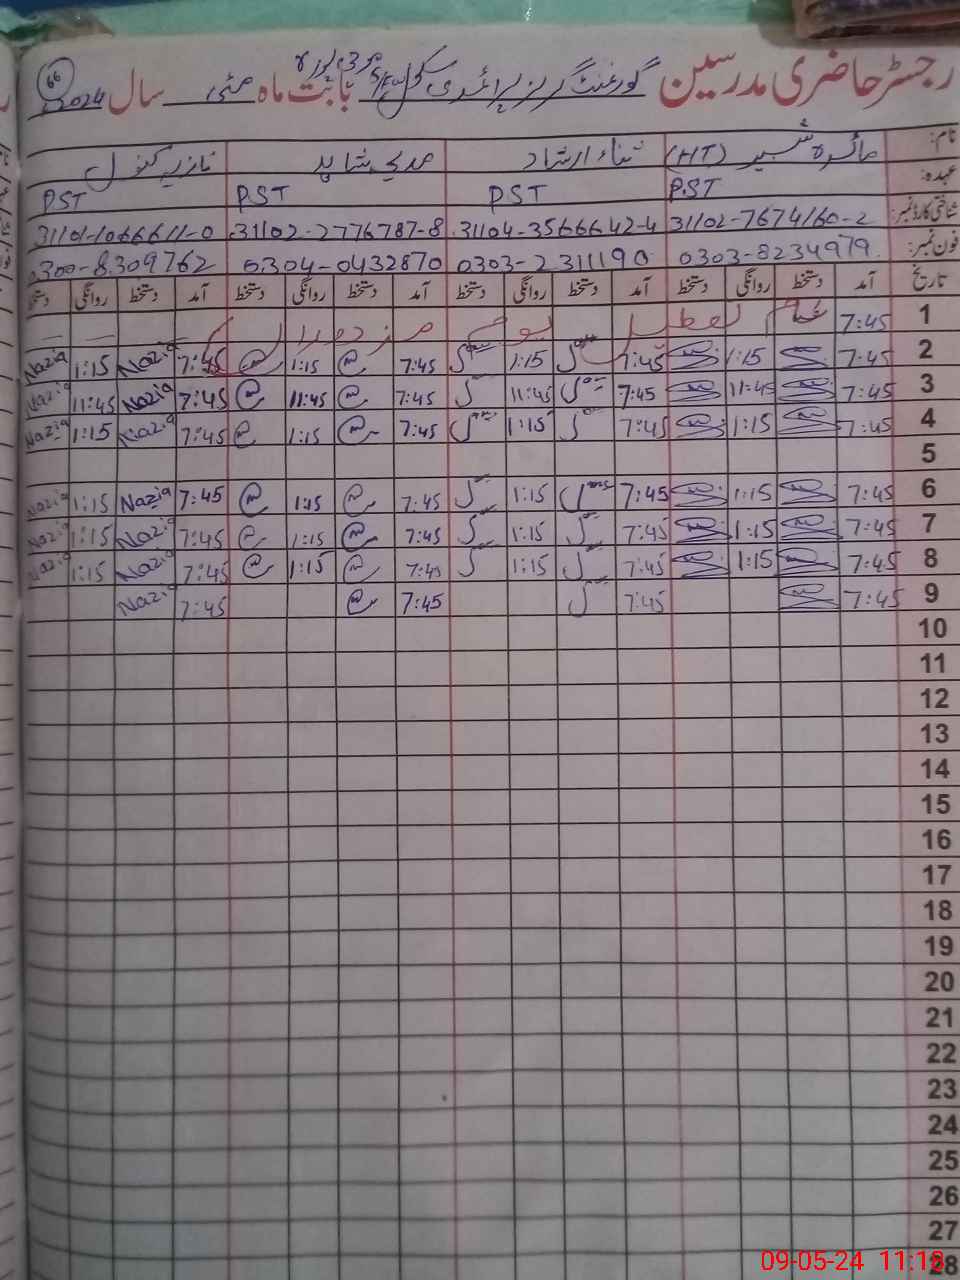 رجسٹر حاضری مدرسین گورنمنٹ گرلز پرائمری سکول بابت ماہ مئی سال 2024
66
نام: مائرہ شبیر (HT) ثناء ارشاد شاہد نازیہ کنول
عہدہ: PST PST PST PST
شناختی کارڈ نمبر: 31102-7674160-2 31104-3566642-4 31102-2776787-8 31101-1066611-0
فون نمبر: 0303-8234979 0303-2311190 0304-0432870 0300-8309762
تاریخ آمد دستخط روانگی دستخط آمد دستخط روانگی دستخط آمد دستخط روانگی دستخط آمد دستخط روانگی دستخط
1 7:45 عام تعطیل یوم مزدوراں — —
2 7:45 1:15 7:45 1:15 7:45 1:15 7:45 Nazia 1:15 Nazia
3 7:45 11:45 7:45 11:45 7:45 11:45 7:45 Nazia 11:45 Nazia
4 7:45 1:15 7:45 1:15 7:45 1:15 7:45 Nazia 1:15 Nazia
5
6 7:45 1:15 7:45 1:15 7:45 1:15 7:45 Nazia 1:15 Nazia
7 7:45 1:15 7:45 1:15 7:45 1:15 7:45 Nazia 1:15 Nazia
8 7:45 1:15 7:45 1:15 7:45 1:15 7:45 Nazia 1:15 Nazia
9 7:45 7:45 7:45 7:45 Nazia
10
11
12
13
14
15
16
17
18
19
20
21
22
23
24
25
26
27
28
09-05-24 11:18